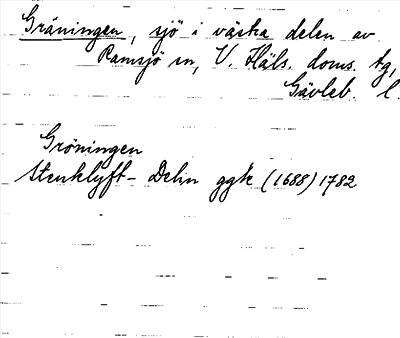 Gräningen, sjö i västra delen av
Ramsjö sn, V. Häls. doms. tg,
Gävleb. l.
Gröningen
Stenklyft - Delin ggk (1688) 1782